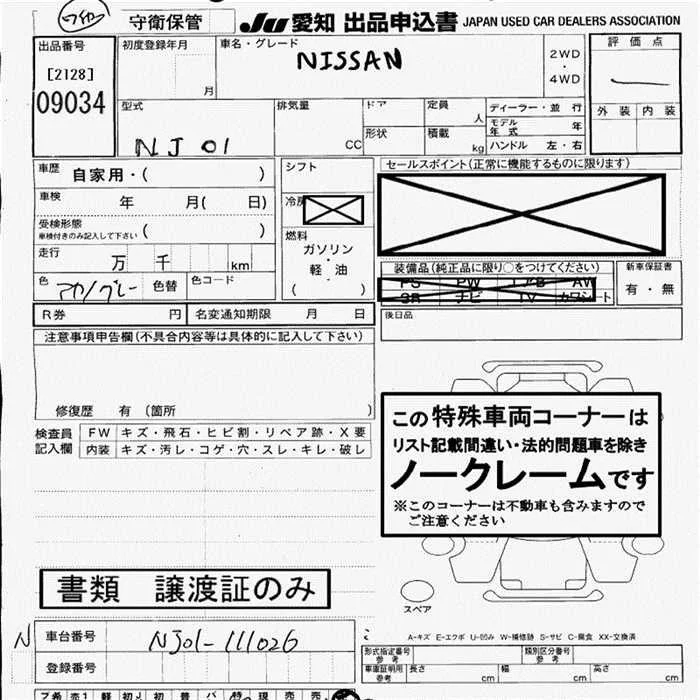 守衛保管 JU 愛知 出品申込書 JAPAN USED CAR DEALERS ASSOCIATION
出品番号 初度登録年月 車名・グレード 2WD 評価点
[2128] 月 NISSAN ・
09034 4WD
型式 排気量 ドア 定員 ディーラー・並行 外装 内装
人 モデル年式 年
NJ01 CC 形状 積載 kg ハンドル 左・右
車歴 自家用・( ) シフト セールスポイント(正常に機能するものに限ります)
車検 年 月( 日) 冷房
受検形態 ( ) 燃料
車検付きのみ記入して下さい ガソリン
走行 万 千 km ・ 装備品(純正品に限り○をつけてください) 新車保証書
軽・油 PS PW エアB AW 有・無
色 色替 色コード ( ) SR ナビ TV カワシート
R券 円 名変通知期限 月 日 後日品
注意事項申告欄(不具合内容等は具体的に記入して下さい)
修復歴 有 (箇所 )
この特殊車両コーナーは
リスト記載間違い・法的問題車を除き
ノークレームです
※このコーナーは不動車も含みますので
ご注意ください
検査員 FW キズ・飛石・ヒビ割・リペア跡・X要
記入欄 内装 キズ・汚レ・コゲ・穴・スレ・キレ・破レ
書類 譲渡証のみ
スペア
N 車台番号 NJ01-111026
A-キズ E-エクボ U-凹み W-補修跡 S-サビ C-腐食 XX-交換済
登録番号
形式指定番号 参考 類別区分番号 参考
車庫証明用 参考 長さ cm 幅 cm 高さ cm